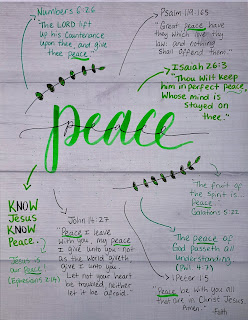 Numbers 6:26
"The LORD lift
up his countenance
upon thee, and give
thee peace."
Psalm 119:165
"Great peace have
they which love thy
law: and nothing
shall offend them."
Isaiah 26:3
"Thou wilt keep
him in perfect peace,
Whose mind is
stayed on
thee."
peace
KNOW
Jesus
KNOW
Peace.
Jesus is
our peace!
(Ephesians 2:14)
John 14:27
"Peace I leave
with you, my peace
I give unto you: not
as the world giveth,
give I unto you.
Let not your heart
be troubled, neither
let it be afraid."
The fruit of
the Spirit is...
Peace
Galatians 5:22
The peace of
God passeth all
understanding
(Phil. 4:7)
1 Peter 5
"Peace be with you all
that are in Christ Jesus.
Amen."
Faith